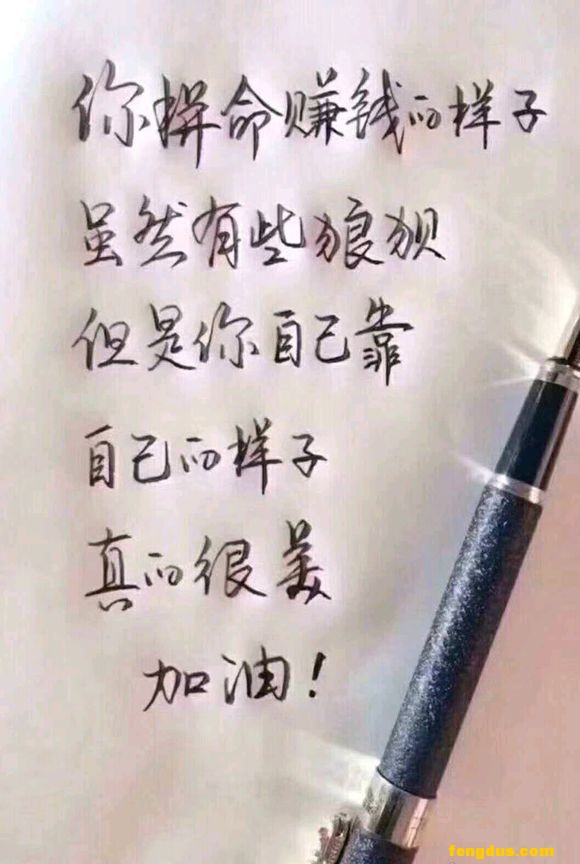 你拼命赚钱的样子
虽然有些狼狈
但是你自己靠
自己的样子
真的很美
加油！
fengdus.com